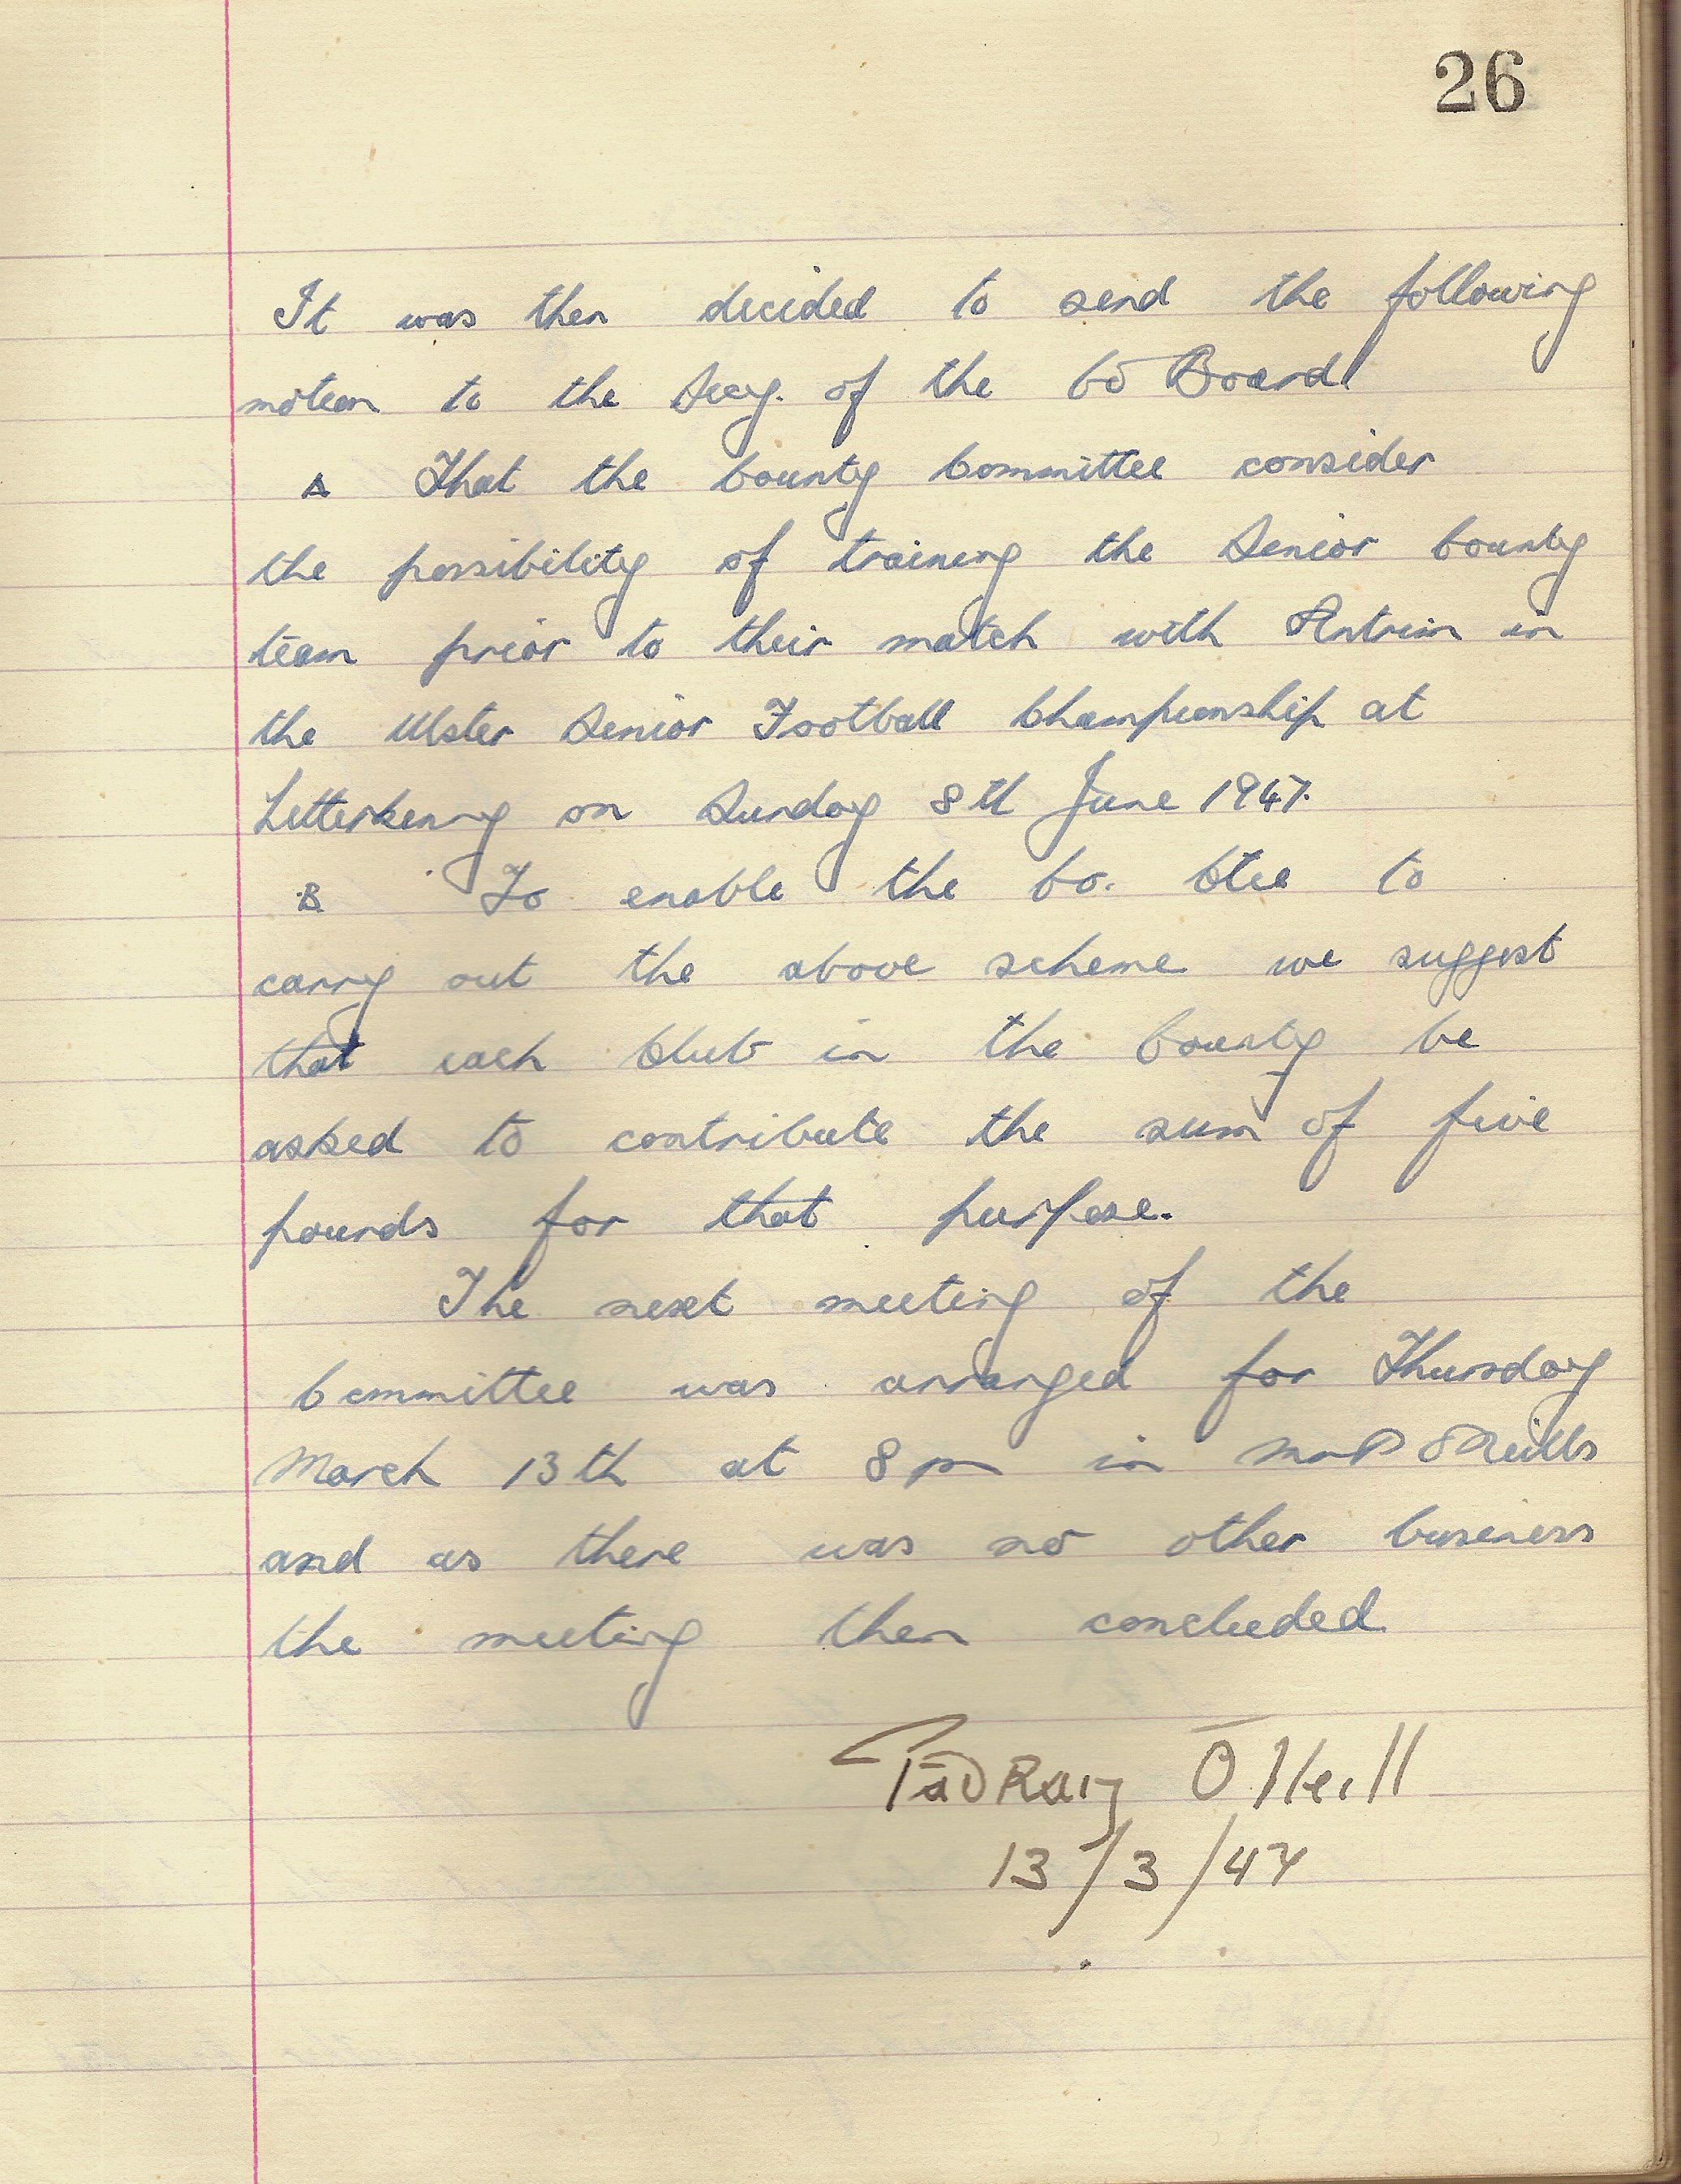 26
It was then decided to send the following
motion to the Secy. of the Co Board.
A That the County Committee consider
the possibility of training the Senior County
team prior to their match with Antrim in
the Ulster Senior Football Championship at
Letterkenny on Sunday 8th June 1947.
B To enable the Co. Ctee to
carry out the above scheme we suggest
that each Club in the County be
asked to contribute the sum of five
pounds for that purpose.
The next meeting of the
Committee was arranged for Thursday
March 13th at 8 pm in Mr P O'Neills
and as there was no other business
the meeting then concluded.
Pádraig Ó Neill
13/3/47